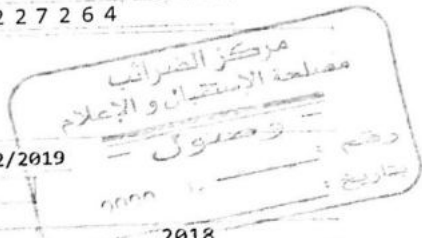 227264
مركز الضرائب
مصلحة الاستقبال و الإعلام
- وصول -
رقم :
بتاريخ :
2/2019
2018